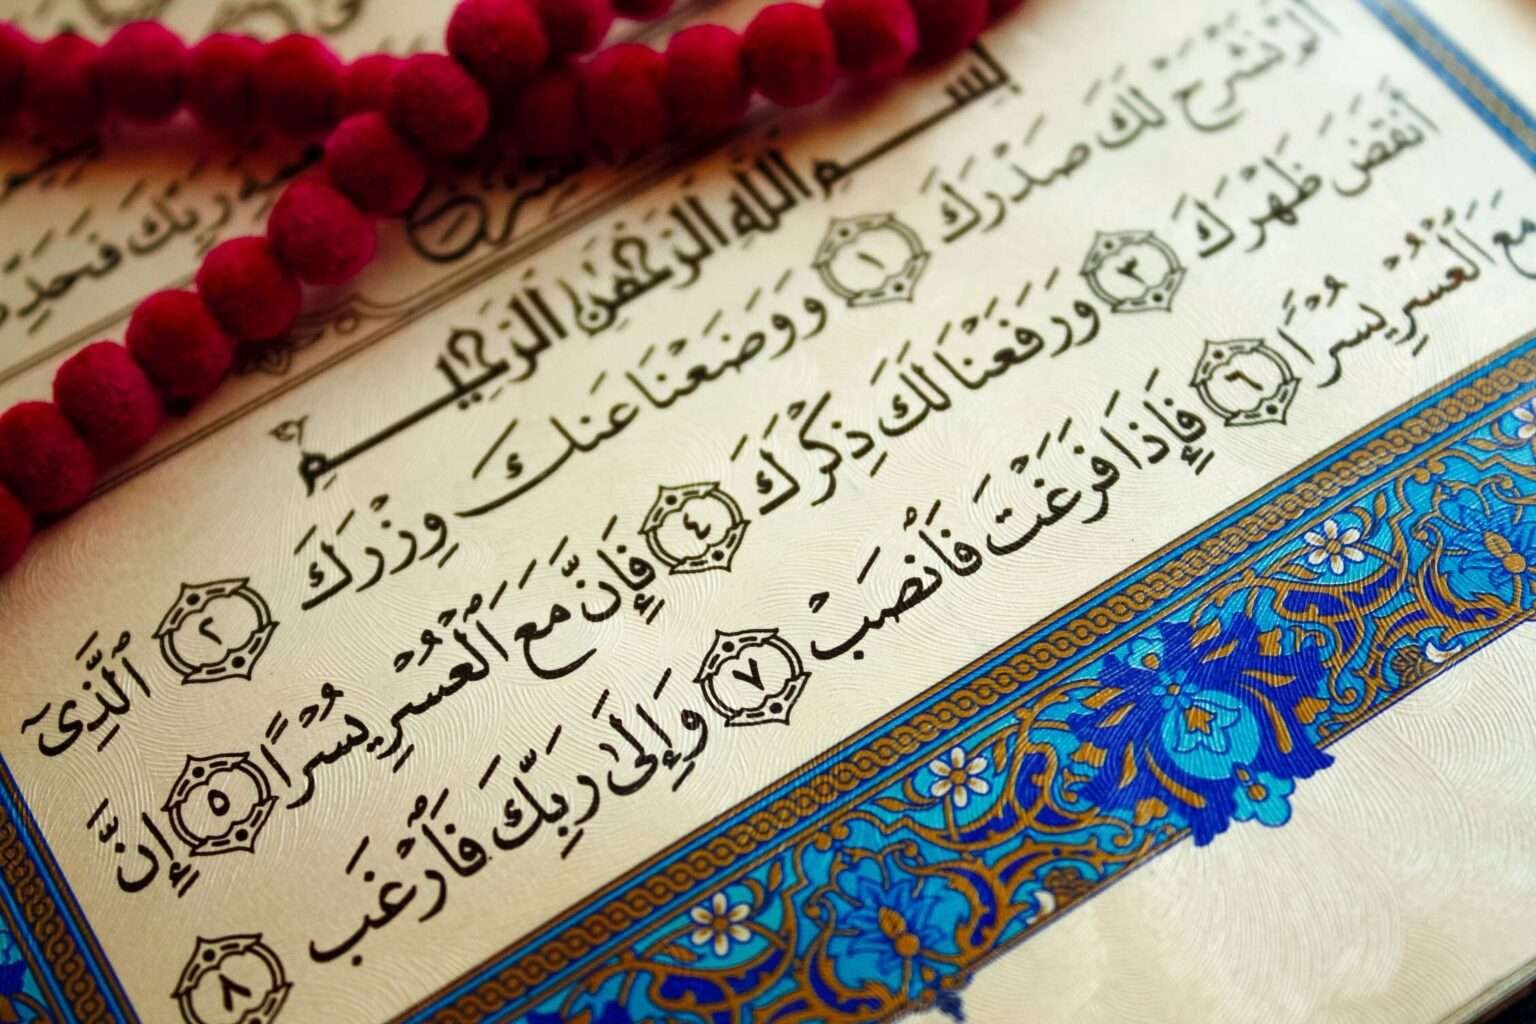 رَبِّكَ فَحَدِّثْ
بِسْمِ ٱللَّهِ ٱلرَّحْمَٰنِ ٱلرَّحِيمِ
أَلَمْ نَشْرَحْ لَكَ صَدْرَكَ ١ وَوَضَعْنَا عَنكَ وِزْرَكَ ٢ ٱلَّذِىٓ
أَنقَضَ ظَهْرَكَ ٣ وَرَفَعْنَا لَكَ ذِكْرَكَ ٤ فَإِنَّ مَعَ ٱلْعُسْرِ يُسْرًا ٥ إِنَّ
مَعَ ٱلْعُسْرِ يُسْرًا ٦ فَإِذَا فَرَغْتَ فَٱنصَبْ ٧ وَإِلَىٰ رَبِّكَ فَٱرْغَب ٨